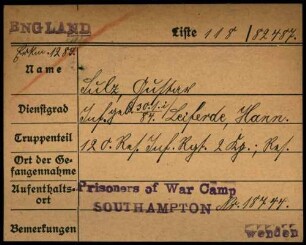 ENGLAND
Liste 118/82487.
Name
Sulz, Gustav
Dienstgrad
Inf. 30.1. 84. Leiferde, Hann.
Truppenteil
120. Res. Inf. Rgt. 2 Kp.; Res.
Ort der Ge-
fangennahme
Aufenthalts-
ort
Prisoners of War Camp
SOUTHAMPTON Nr. 18744.
Bemerkungen
wenden